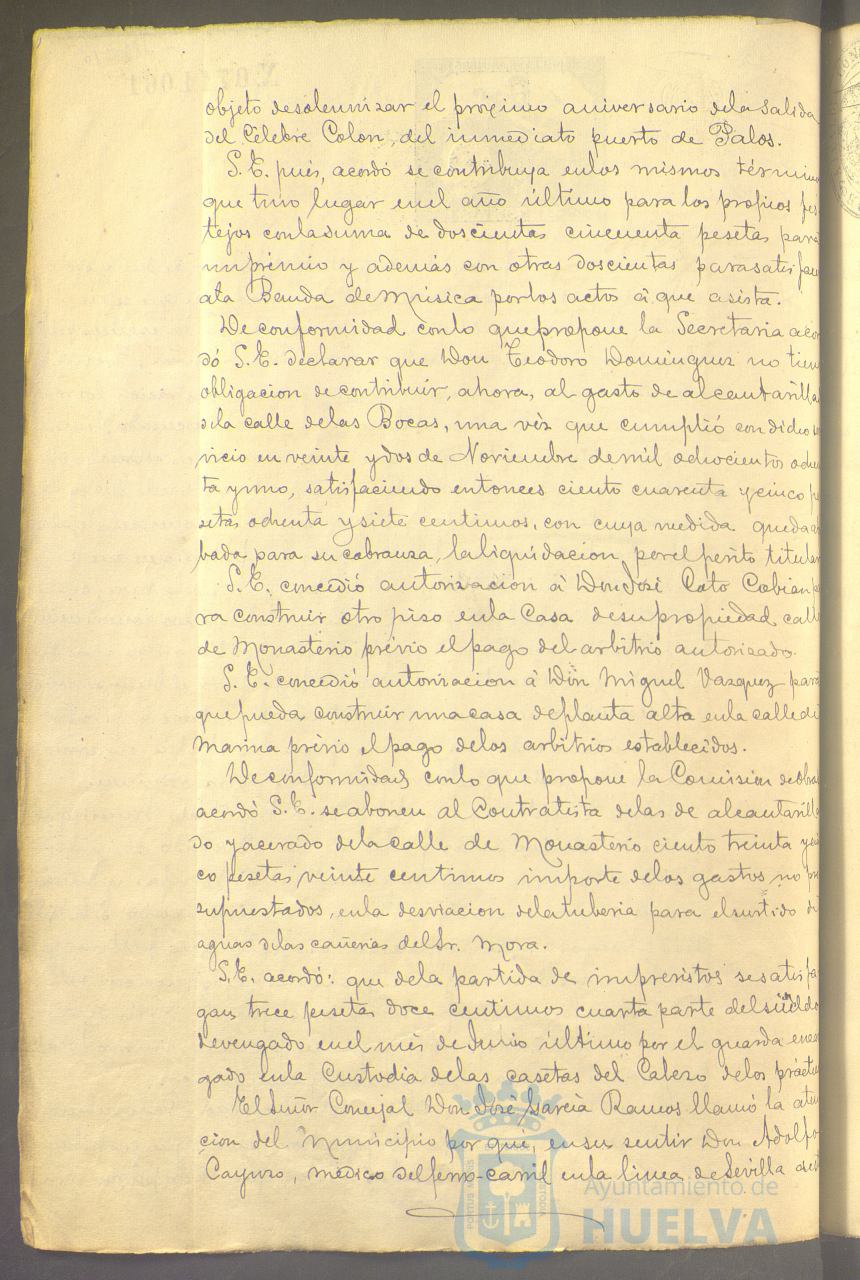 objeto desolemnizar el próximo aniversario dela Salida
del Célebre Colon, del inmediato puerto de Palos.
S. E. pués, acordó se contribuya enlos mismos término
que tuvo lugar enel año último para los propios fes
tejos conlasuma de doscientas cincuenta pesetas para
unprémio y además con otras doscientas parasatisfac
ala Banda deMúsica porlos actos á que asista.
De conformidad conlo quepropone la Secretaria acor
dó S. E. declarar que Don Teodoro Dominguez no tien
obligacion decontribuir, ahora, al gasto de alcantarilla
dela calle delas Bocas, una véz que cumplió condicho ser
vicio en veinte ydos de Noviembre demil ochocientos ochen
ta yuno, satisfaciendo entonces ciento cuarenta ycinco pe
setas ochenta ysiete centimos, con cuya medida queda
bada para su cobranza, laliquidacion, porel perito titular
S. E. concedió autorizacion á DonJosé Coto Cobian pa
ra construir otro piso enla Casa desupropiedad calle
de Monasterio prévio elpago del arbitrio autorizado.
S. E. concedió autorizacion á Don Miguel Vazquez para
quepueda construir unacasa deplanta alta enla callede
Marina prévio elpago delos arbitrios establecidos.
De conformidad conlo que propone la Comision deobras
acordó S. E. se abonen al Contratista delas de alcantarilla
do yacerado delacalle de Monasterio ciento treinta ycin
co pesetas veinte centimos importe delos gastos no pre
supuestados, enla desviacion delatuberia para elsurtido de
aguas delas cañerias delSr. Mora.
S. E. acordó: que dela partida de imprevistos sesatisfa
gan trece pesetas doce centimos cuarta parte delsueldo
devengado enel més deJunio último por el guarda encar
gado enla Custodia delas casetas del Cabezo delos práctic
El Señor Concejal Don José Garcia Ramos llamó la aten
cion del Municipio por qué, ensu sentir Don Adolfo
Cayuso, médico delferro-cárril enla linea deSevilla
Ayuntamiento de
HUELVA